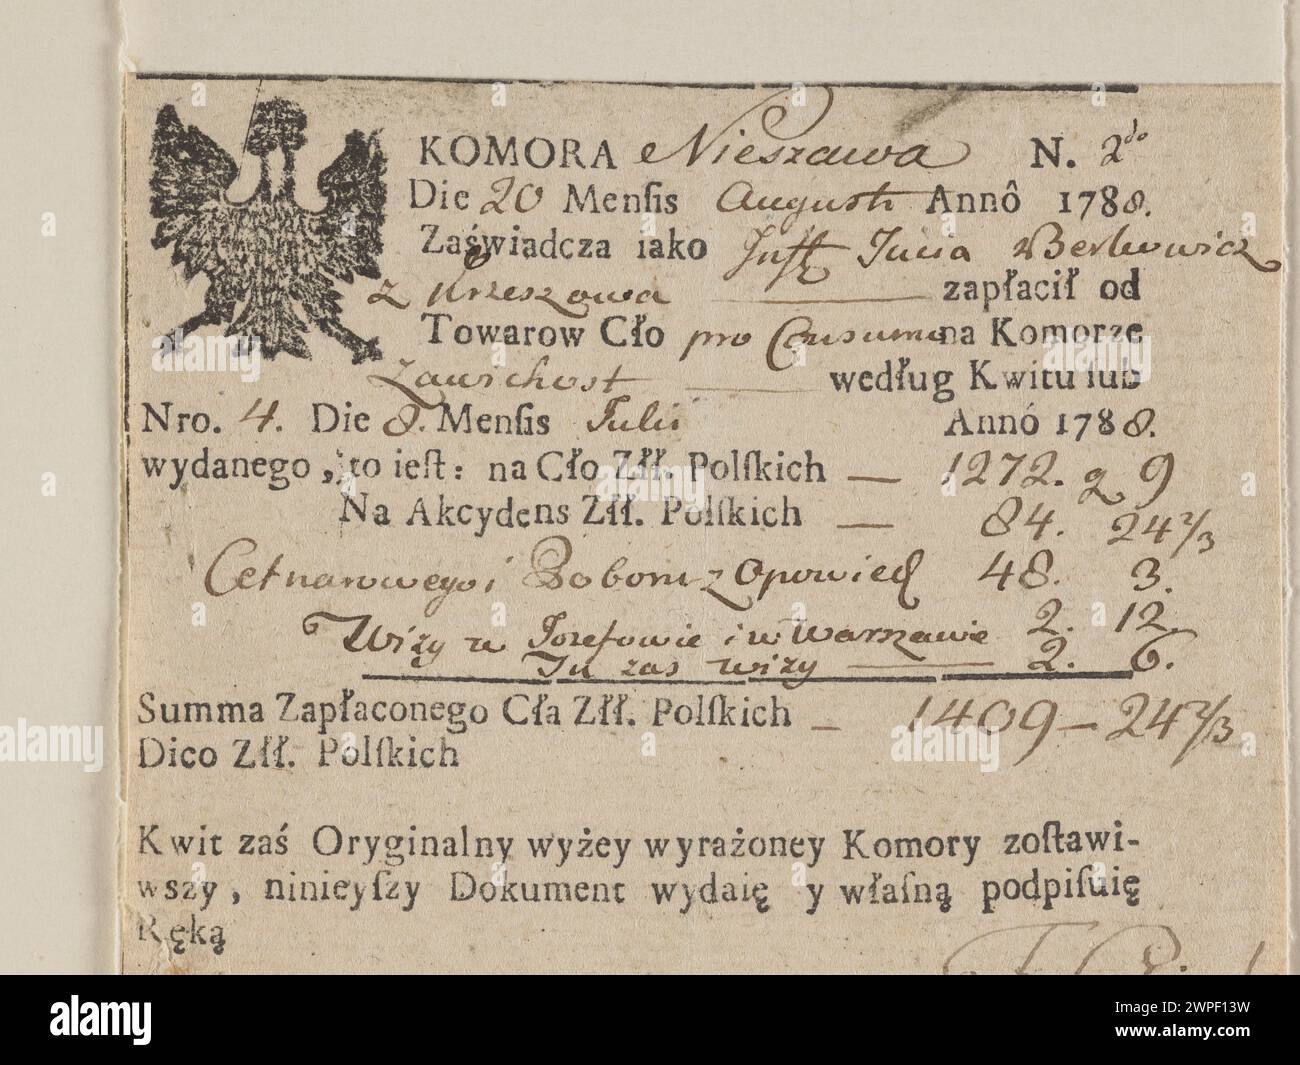 KOMORA Nieszawa N. 2do
Die 20 Mensis Augusti Annô 1788.
Zaświadcza iako Berkowicz
z Krzeszowa zapłacił od
Towarow Cło pro Consumo na Komorze
Zawichost według Kwitu lub
Nro. 4. Die 8. Mensis Julii Annó 1788.
wydanego, to iest: na Cło Złł. Polskich — 1272. g 9
Na Akcydens Złł. Polskich — 84. 24 2/3
Cetnarowego i z Opowied 48. 3.
Wizy w Jozefowie i w Warszawie 2. 12.
Tu zas wizy 2. 6.
Summa Zapłaconego Cła Złł. Polskich — 1409 – 24 2/3
Dico Złł. Polskich
Kwit zaś Oryginalny wyżey wyrażoney Komory zostawi-
wszy, ninieyszy Dokument wydaię y własną podpisuię
Ręką
alamy
Image ID: 2WPF13W
www.alamy.com